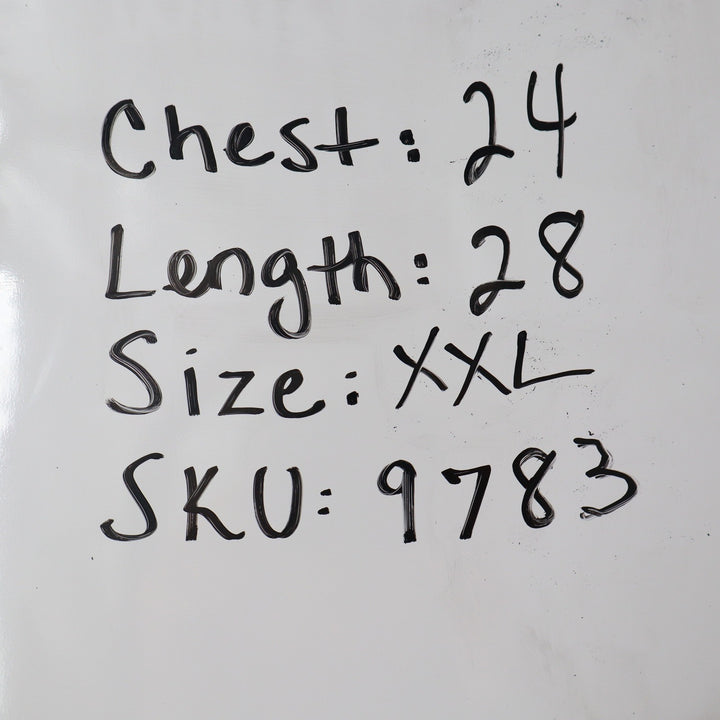 Chest: 24
Length: 28
Size: XXL
SKU: 9783